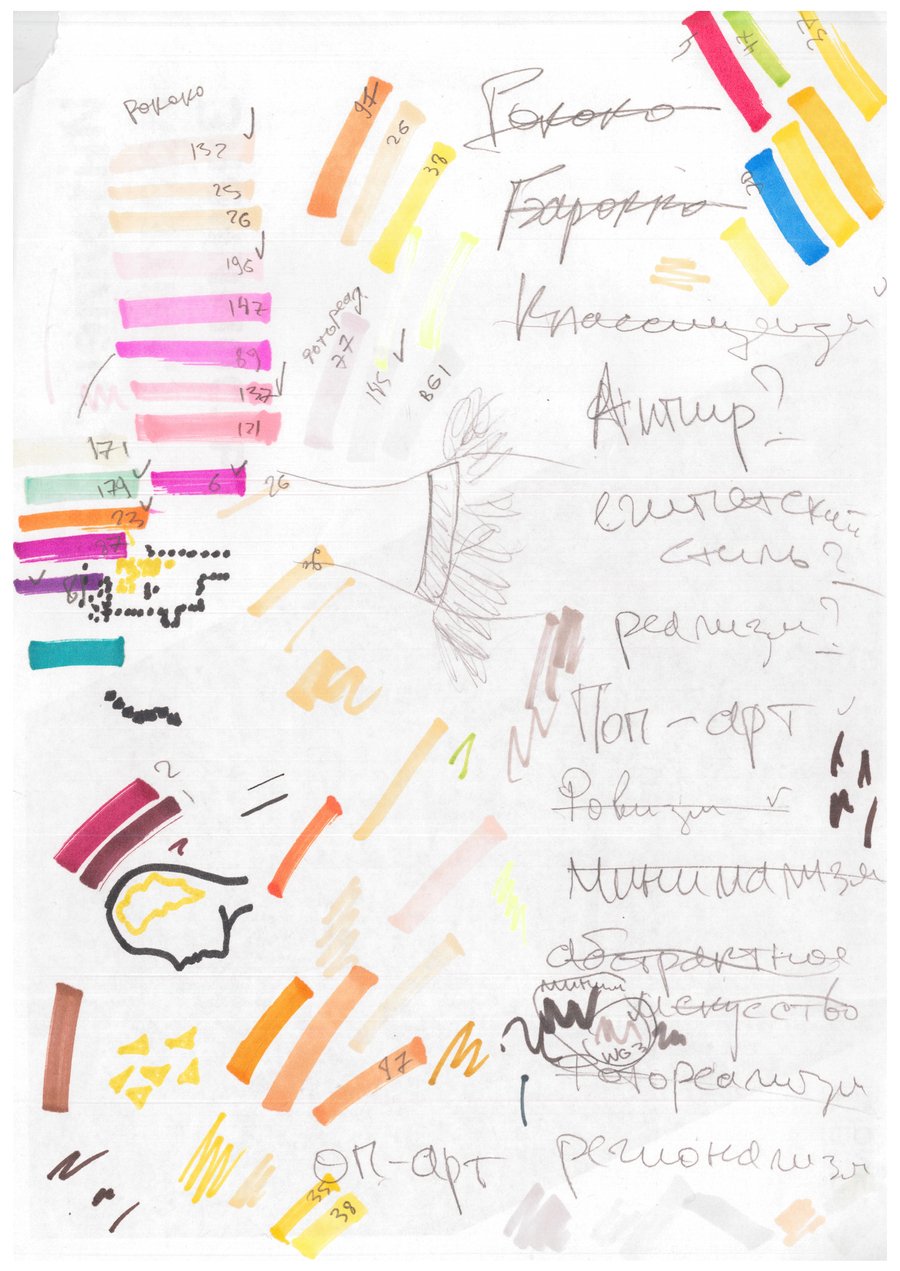 Рококо
132
25
26
196
147
89
137
121
171
179
6
26
23
87
81
97
26
38
фотореал.
77
145
BG1
Рококо
Барокко
Классицизм
Ампир?
египетский
стиль?
реализм?
Поп-арт
Фовизм
Минимализм
абстрактное
искусство
миним
WG3
Фотореализм
регионализм
оп-арт
2
1
97
35
38